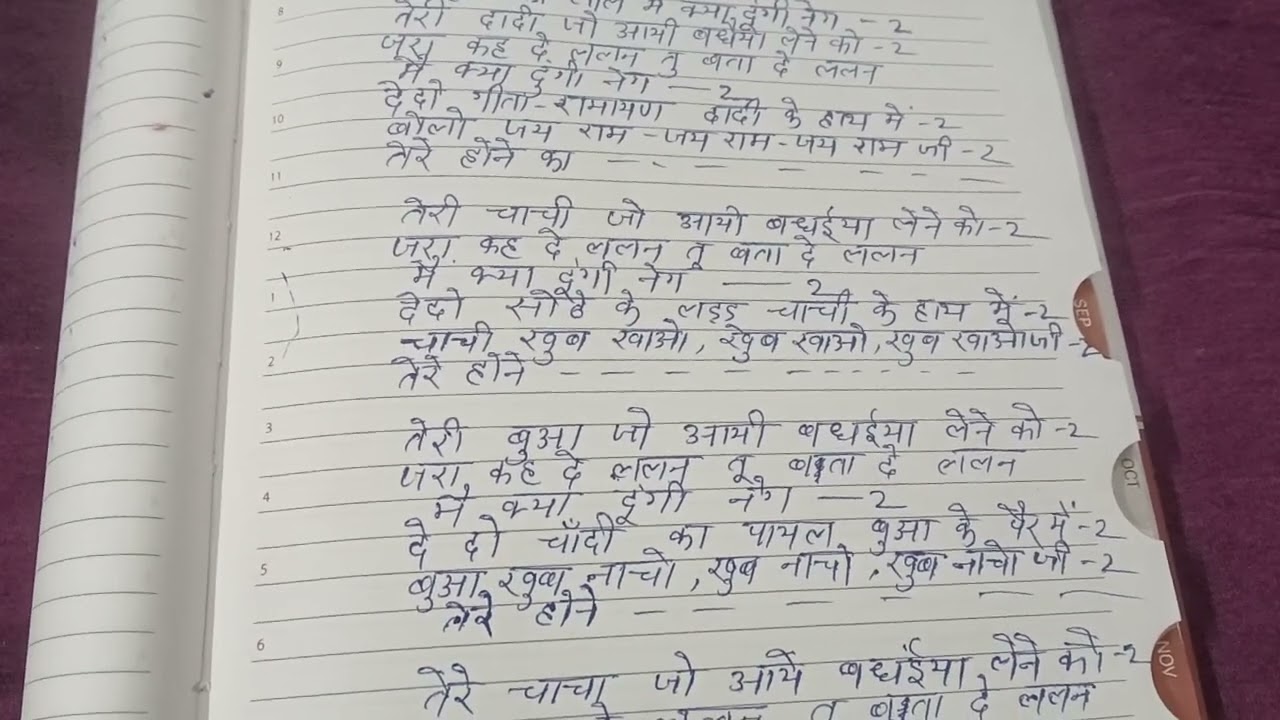 में क्या दूंगी नेग - 2
तेरी दादी जो आयी बधईया लेने को - 2
जरा कह दे ललन तु बता दे ललन
मै क्या दुंगी नेग — 2
देदो गीता-रामायण दादी के हाथ में - 2
बोलो जय राम - जय राम - जय राम जी - 2
तेरे होने का - - - - - - -
तेरी चाची जो आयी बधईया लेने को - 2
जरा कह दे ललन तू बता दे ललन
मै क्या दूंगी नेग — 2
देदो सोठे के लड्डू चाची के हाथ में - 2
चाची खुब खाओ, खुब खाओ, खुब खाओजी - 2
तेरे होने - - - - - - - - -
तेरी बुआ जो आयी बधईया लेने को - 2
जरा कह दे ललन तू बता दे ललन
मै क्या दूंगी नेग — 2
दे दो चाँदी का पायल बुआ के पैर में - 2
बुआ खुब नाचो, खुब नाचो, खुब नाचो जी - 2
तेरे होने - - - - - - -
तेरे चाचा जो आये बधंईया लेने को - 2
ललन तू बता दे ललन
8
9
10
11
12
1
2
3
4
5
6
SEP
OCT
NOV